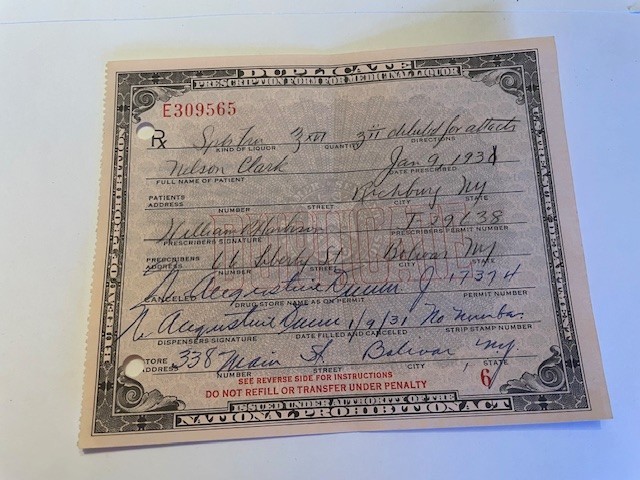 DUPLICATE
PRESCRIPTION FORM FOR MEDICINAL LIQUOR
E309565
Rx
KIND OF LIQUOR QUANTITY diluted for attacks DIRECTIONS
Nelson Clark Jan 9, 1931
FULL NAME OF PATIENT DATE PRESCRIBED
PATIENTS Richburg NY
ADDRESS NUMBER STREET CITY STATE
William
PRESCRIBERS SIGNATURE PRESCRIBERS PERMIT NUMBER
PRESCRIBERS 66 Liberty St Bolivar NY
ADDRESS NUMBER STREET CITY STATE
Augustine J 17374
CANCELED DRUG STORE NAME AS ON PERMIT PERMIT NUMBER
Augustine 1/9/31 No Number
DISPENSERS SIGNATURE DATE FILLED AND CANCELED STRIP STAMP NUMBER
STORE 338 Main St Bolivar NY
ADDRESS NUMBER STREET CITY STATE
SEE REVERSE SIDE FOR INSTRUCTIONS
DO NOT REFILL OR TRANSFER UNDER PENALTY 6
ISSUED UNDER AUTHORITY OF THE
NATIONAL PROHIBITION ACT
BUREAU OF PROHIBITION
TREASURY DEPARTMENT